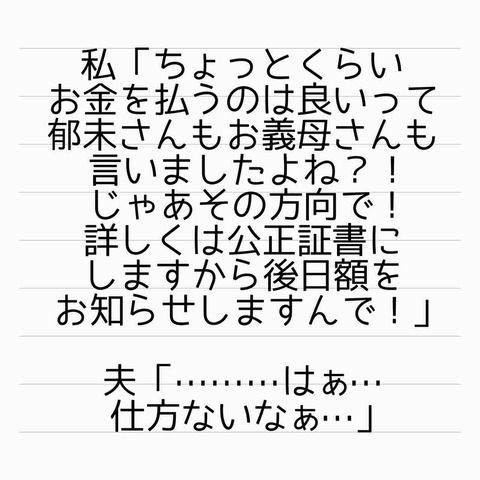 私「ちょっとくらい
お金を払うのは良いって
郁未さんもお義母さんも
言いましたよね？！
じゃあその方向で！
詳しくは公正証書に
しますから後日額を
お知らせしますんで！」
夫「………はぁ…
仕方ないなぁ…」